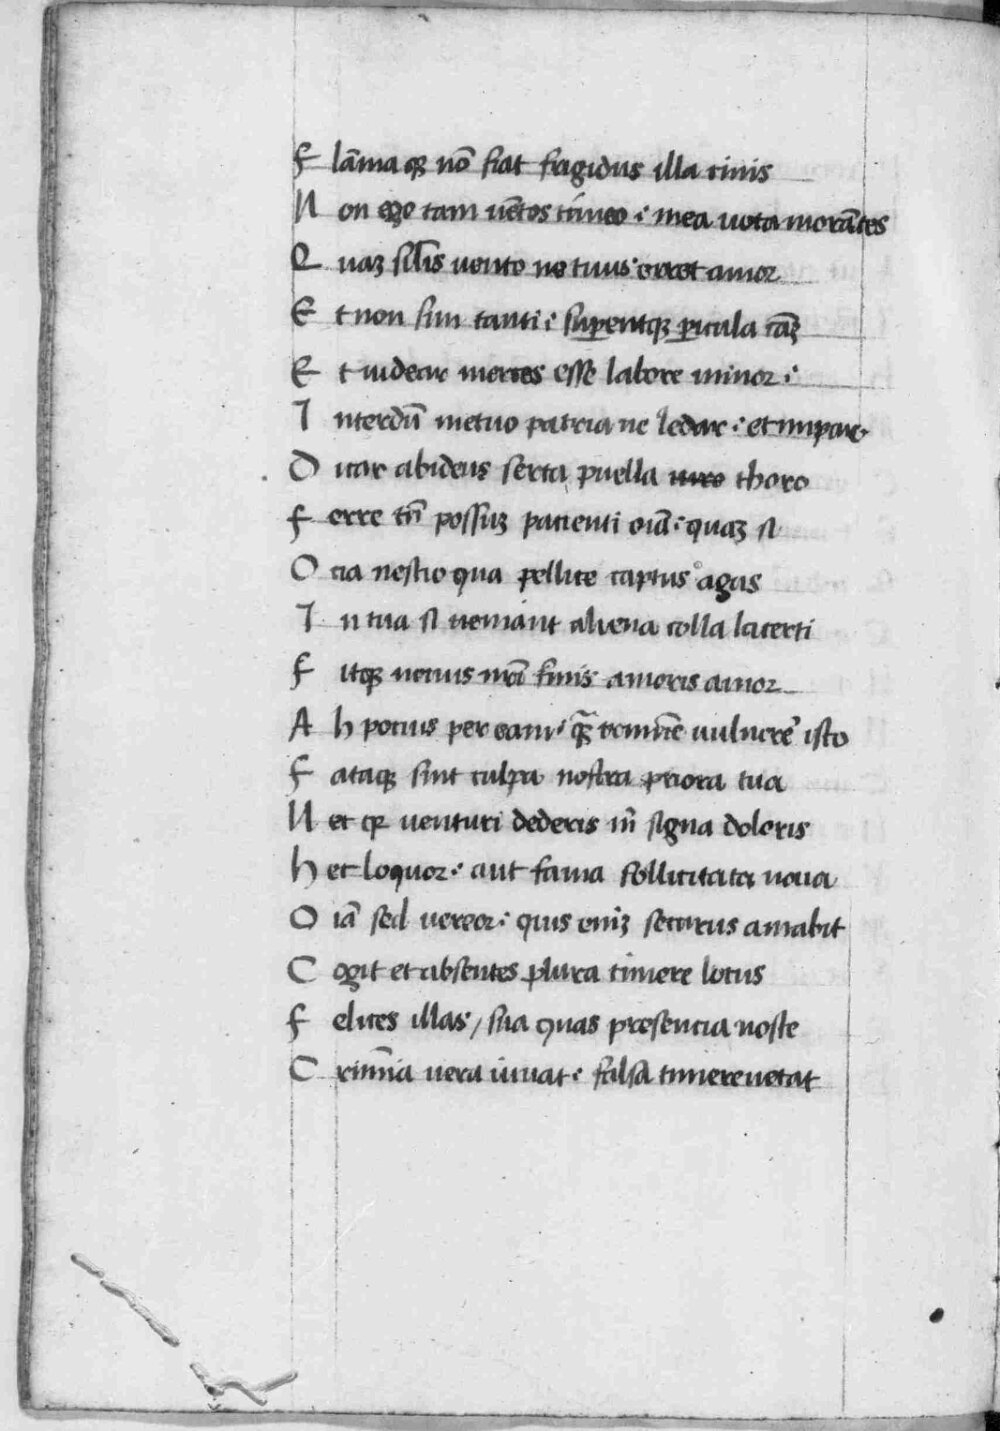 F lāmaqꝫ nō fiat frigidus illa cinis
N on ego tam uētos timeo : mea uota morātes
Q uaꝫ sil̄is uento ne tuus erret amor
E t non sim tanti : superentqꝫ ꝑicula cāꝫ
E t uidear merces esse labore minor :
I nterdū metuo patria ne ledar : et impar
D icar abideus serta puella thoro
F erre tn̄ possuꝫ patienti oīa : quaꝫ si
O cia nescio qua pellice captus agas
I n tua si ueniant aliena colla lacerti
F itqꝫ nouus nrī finis amoris amor
A h potius peream : q̄ꝫ crimīe uulnerer isto
F ataqꝫ sint culpa nostra priora tua
N ec qꝫ venturi dederis m̄ signa doloris
H ec loquor : aut fama sollicitata noua
O īa sed uereor : quis eniꝫ securus amabit
C ogit et absentes plura timere locus
F elices illas / sua quas presentia nosse
C rimīa vera iuuat : falsa timere uetat